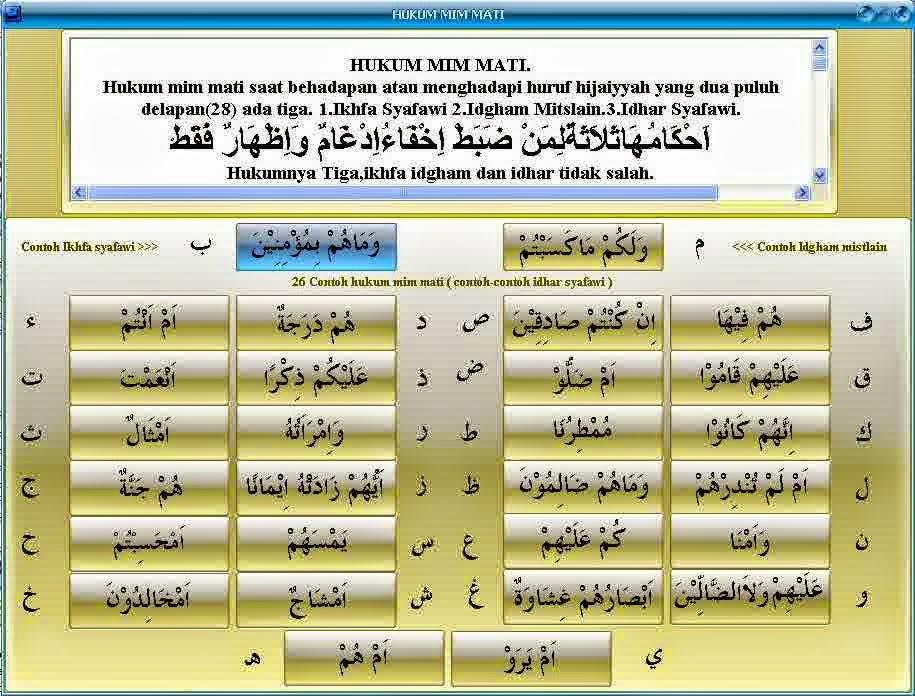 HUKUM MIM MATI
HUKUM MIM MATI.
Hukum mim mati saat behadapan atau menghadapi huruf hijaiyyah yang dua puluh
delapan(28) ada tiga. 1.Ikhfa Syafawi 2.Idgham Mitslain.3.Idhar Syafawi.
اَحْكَامُهَاثَلَاثَةٌلِمَنْ ضَبَطْ اِخْفَاءُاِدْغَامٌ وَاِظْهَارٌ فَقَطْ
Hukumnya Tiga,ikhfa idgham dan idhar tidak salah.
Contoh Ikhfa syafawi >>> ب وَمَاهُمْ بِمُؤْمِنِيْنَ وَلَكُمْ مَاكَسَبْتُمْ م <<< Contoh Idgham mistlain
26 Contoh hukum mim mati ( contoh-contoh idhar syafawi )
ء اَمْ اَنْتُمْ هُمْ دَرَجَةٌ د ص اِنْ كُنْتُمْ صَادِقِيْنَ هُمْ فِيْهَا ف
ت اَنْعَمْتَ عَلَيْكُمْ ذِكْرًا ذ ض اَمْ ضَلُّوْ عَلَيْهِمْ قَامُوْا ق
ث اَمْثَالٌ وَاِمْرَأَتُهُ ر ط مُمْطِرُنَا اِنَّهُمْ كَانُوْا ك
ج هُمْ جَنَّةٌ اَيُّهُمْ زَادَتْهُ اِيْمَانًا ز ظ وَمَاهُمْ ضَالِمُوْنَ اَمْ لَمْ تُنْدِرْهُمْ ل
ح اَمْحَسِبْتُمْ يَمْسَهُمْ س ع كُمْ عَلَيْهِمْ وَاَمْنَا ن
خ اَمْخَالِدُوْنَ اَمْشَاجٌ ش غ اَبْصَارُهُمْ غِشَاوَةٌ عَلَيْهِمْ وَلاَالضَّالِّيْنَ و
هـ اَمْ هُمْ اَمْ يَرَوْ ي